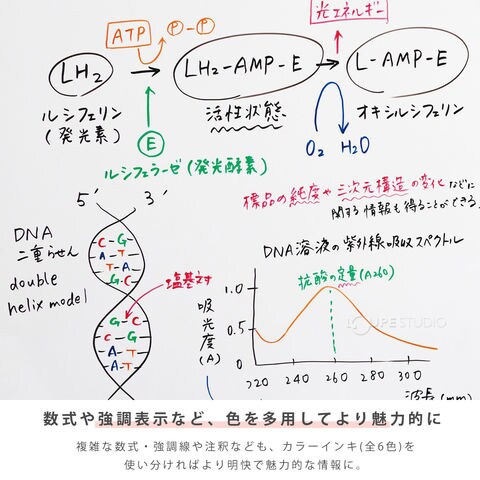 光エネルギー
ATP
P-P
LH₂
LH₂-AMP-E
L-AMP-E
ルシフェリン
(発光素)
活性状態
オキシルシフェリン
E
O₂ H₂O
ルシフェラーゼ(発光酵素)
5′ 3′
標品の純度や三次元構造の変化などに
関する情報も得ることができる。
DNA
二重らせん
double
helix model
C-G
A-T
T-A
G-C
塩基対
G-C
C-G
A-T
A-T
DNA溶液の紫外線吸収スペクトル
核酸の定量(A260)
吸光度(A)
1.0
0.5
0
LOUPE STUDIO
220 240 260 280 300
数式や強調表示など、色を多用してより魅力的に
複雑な数式・強調線や注釈なども、カラーインキ(全6色)を
使い分ければより明快で魅力的な情報に。